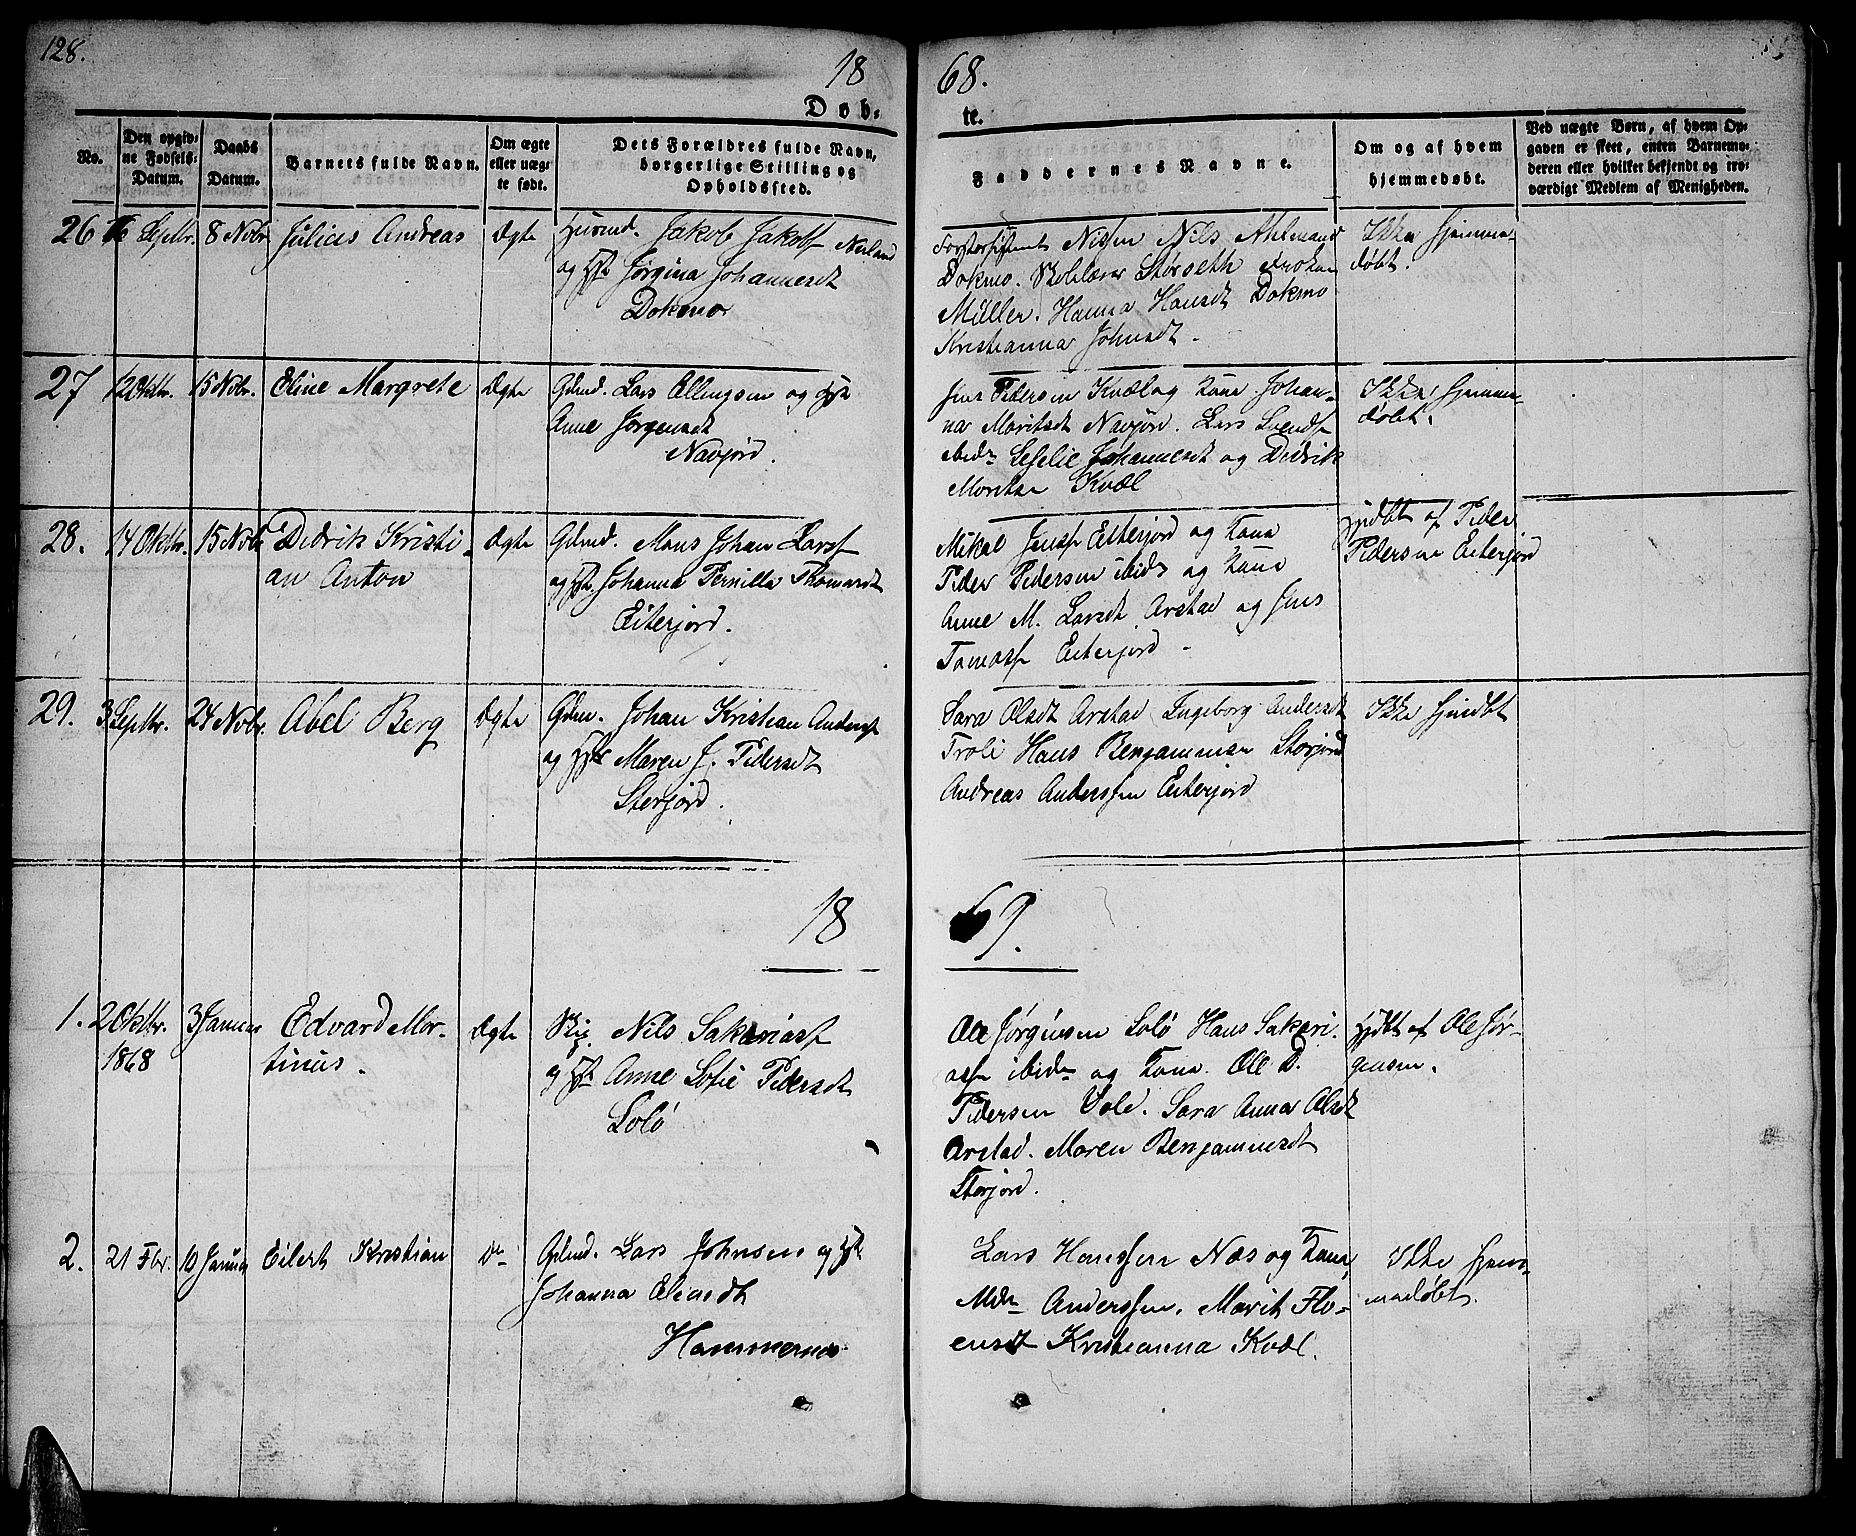 128.
18 68.
Døb- te.
No.
Den opgiv-
ne Fødsels-
Datum.
Daabs
Datum.
Barnets fulde Navn.
Om ægte
eller uæg-
te født.
Dets Forældres fulde Navn,
borgerlige Stilling og
Opholdssted.
Faddernes Navne.
Om og af hvem
hjemmedøbt.
Ved uægte Børn, af hvem Op-
gaven er skeet, enten Barnemo-
deren eller hvilket bekjendt og tro-
værdigt Medlem af Menigheden.
26 Septbr. 8 Nobr Julius Andreas Ægte
Jakob Jakobs Neiland
og Hst Jørgina Johannesdt
Dokmo
Nissen Nils Ahlmand
Dokmo. Skolelærer Størseth Frøken
Müller. Hanna Hansdt Dokmo
Kristianna Johnsdt.
Ikke hjemme-
døbt.
27 12 Oktbr. 15 Nobr. Eline Margrete Ægte
Gdmd. Lars Ellingsen og Hst
Anne Jørgensdt
Navjord.
Jens Pedersen Kvæl og Kone Johan-
na Moritsdt Navjord. Lars Svends
ibidn Sefelie Johannesdt og Didrik
Moritse Kvæl
Ikke hjemme-
døbt.
28. 14 Oktbr. 15 Nobr Didrik Kristi-
an Anton
Ægte
Gdmd. Mons Johan Larss
og Hst Johanna Pernilla Thomasdt
Eiterjord.
Mikal Jenss Eiterjord og Kone
Peder Pedersen ibidn og Kone
Anne M. Larsdt Arstad og Jens
Tomass Eiterjord -
Hjdbt af Peder
Pedersen Eiterjord
29. 3 Septbr. 24 Nobr. Abel Berg Ægte
Gdm. Johan Kristian Anders
og Hst Maren J. Pedersdt
Storjord.
Sara Olsdt Arstad Ingeborg Andersdt
Troli Hans Benjaminsen Storjord
Andreas Anderssen Eiterjord
Ikke hjmdbt
18 69.
1. 2 Oktbr.
1868
3 Januar Edvard Mor-
tinus.
Ægte
Nils Sakarias
og Hst Anne Sofie Pedersdt
Solø
Ole Jørgensen Solø Hans Sakari-
ass ibidn og Kone. Ole D.
Pedersen Vold. Sara Anna Olsdt
Arstad. Maren Benjaminsdt
Storjord.
Hjdbt af Ole Jør-
gensen.
2. 21 10 Januar Eilert Kristian Do
Gdmd. Lars Johnsen og Hst
Johanna Eliasdt
Hammernes
Lars Hanssen Næs og Kone,
Anderssen. Marit Flo-
ensdt Kristianna Kvæl.
Ikke hjem-
medøbt.